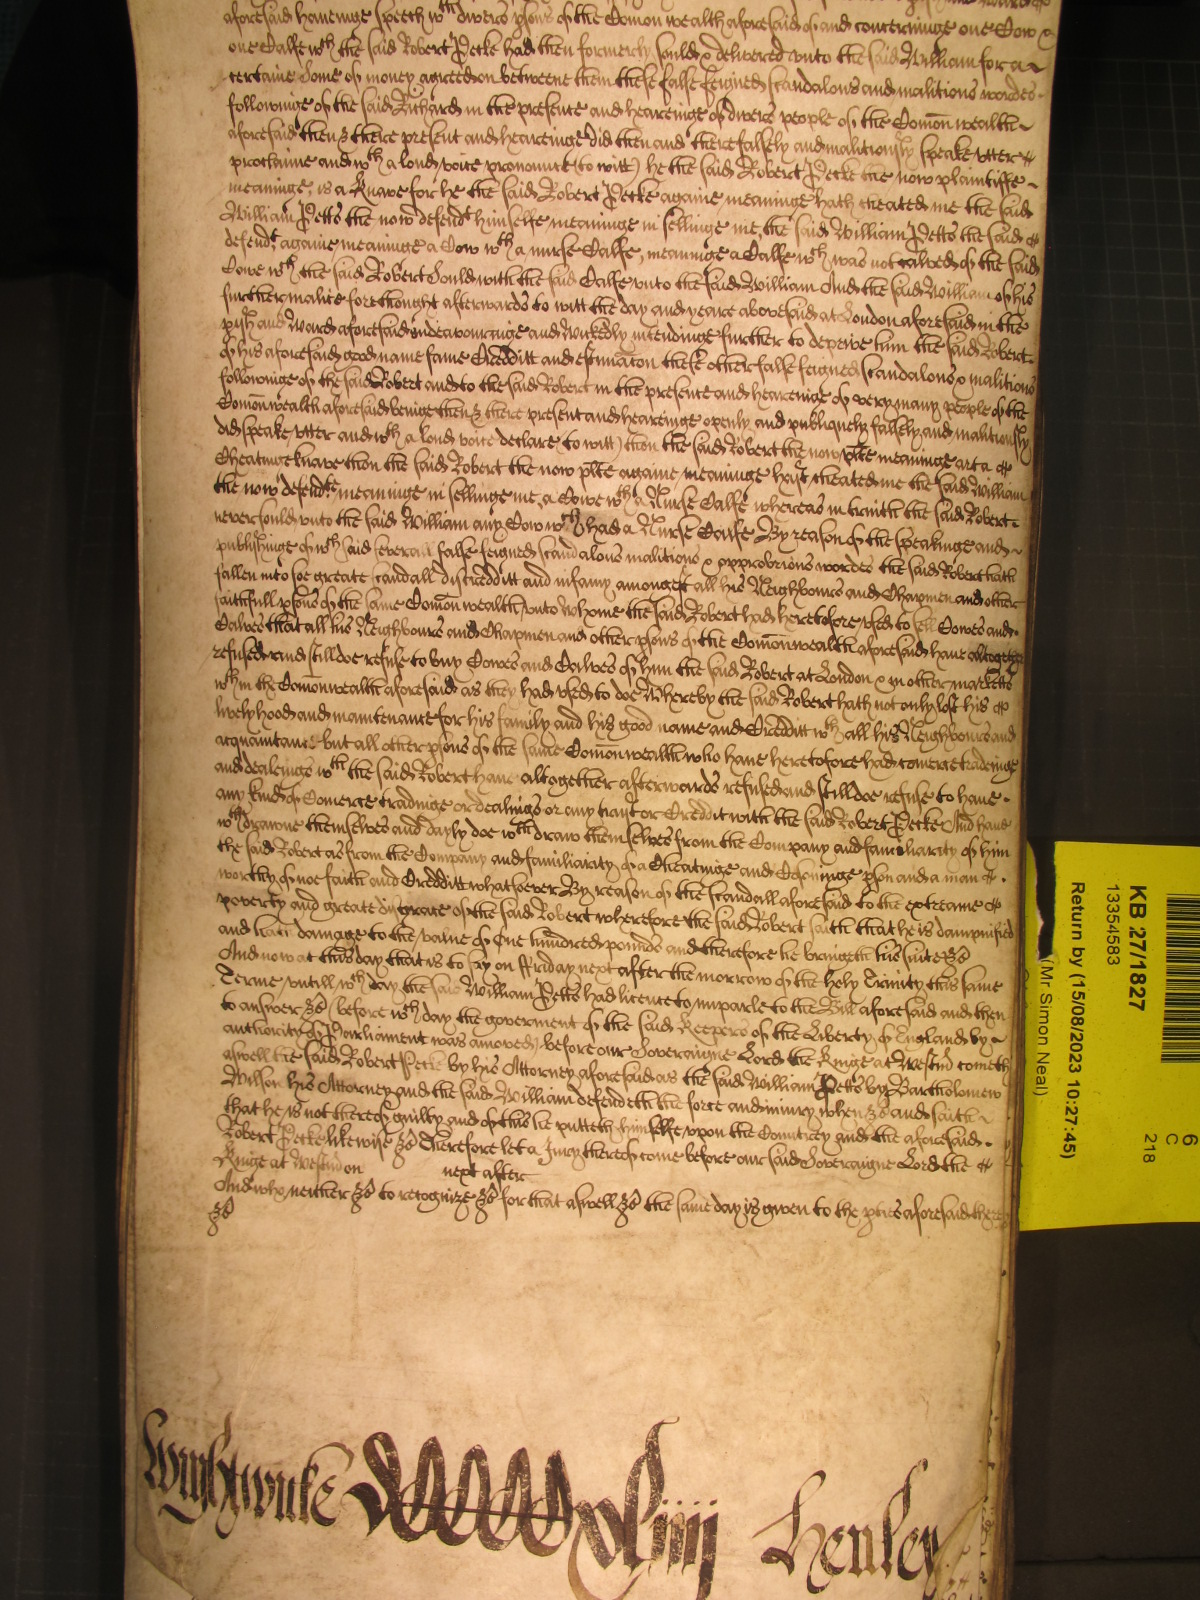 aforesaid haveinge speech wth divers psons of the Comon wealth aforesaid of and concerninge one Cow &
one Calfe wch the said Robert Pecke had then formerly sould & delivered unto the said William for a
certaine some of money agreed on betweene them these false feigned scandalous and malitious wordes
followinge of the said Richard in the presence and heareinge of divers people of the Comon wealth
aforesaid then & there present and heareinge did then and there falsely and malitiously speake utter
proclaime and wth a loud voice pronounce (to witt) he the said Robert Pecke the now plaintiffe
meaninge is a Knave for he the said Robert Pecke againe meaninge hath cheated me the said
William Petts the now defendt himselfe meaninge in sellinge me the said William Petts the said
defendt againe meaninge a Cow wth a nurse Calfe, meaninge a Calfe wch was not calved of the said
Cowe wch the said Robert sould with the said Calfe unto the said William And the said William of his
further malice forethought afterwards to witt the day and yeare abovesaid at London aforesaid in the
pish and Ward aforesaid indeavouringe and wickedly intendinge further to deprive him the said Robert
of his aforesaid good name fame Credditt and estimacon these other false feigned scandalous & malitious
followinge of the said Robert and to the said Robert in the presence and heareinge of very many people of the
Comonwealth aforesaid beinge then & there present and heareinge openly and publiquely falsely and malitiously
did speake utter and wth a loud voice declare to witt) thou the said Robert the now plte meaninge art a
Cheatinge knave thou the said Robert the now plte againe meaninge hast cheated me the said William
the now defendte meaninge in sellinge me a Cowe wth a Nurse Calfe whereas in truith the said Robert
never sould unto the said William any Cow wch had a Nurse Calfe By reason of the speakinge and
publishinge of wch said severall false feigned scandalous malitious & opprobrious wordes the said Robert hath
fallen into soe greate scandall discredditt and infamy amongest all his Neighbours and Chapmen and other
faithfull psons of the same Comon wealth unto whome the said Robert had heretofore used to sell Cowes and
Calves that all his Neighbours and Chapmen and other psons of the Comonwealth aforesaid have altogether
refused and still doe refuse to buy Cowes and Calves of him the said Robert at London & in other markette
wthin the Comonwealth aforesaid as they had used to doe Whereby the said Robert hath not only lost his
livelyhood and maintenance for his family and his good name and Credditt wth all his Neighbours and
acquaintance but all other psons of the same Comonwealth who have heretofore had comerce tradeinge
and dealeinge wth the said Robert have altogether afterwards refused and still doe refuse to have
any kind of Comerce tradinge or dealings or any trust or Credditt with the said Robert Pecke And have
wthdrawne themselves and dayly doe wthdraw themselves from the Company and familiarity of him
the said Robert as from the Company and familiarity of a Cheatinge and Cosoninge pson and a man
worthy of noe faith and Credditt whatsoever By reason of the scandall aforesaid to the extreame
poverty and greate disgrace of the said Robert wherefore the said Robert saith that he is dampnified
and hath damage to the value of One hundred pounds and therefore he bringeth his suite &c
And now at this day that is to say on Friday next after the morrow of the holy Trinity this same
Terme untill wch day the said William Petts had licence to imparle to the Bill aforesaid and then
to answer &c (before wch day the goverment of the said Keepers of the Liberty of England by
authority of Parliament was amoved) before our Soveraigne Lord the Kinge at Westm cometh
aswell the said Robert Pecke by his Attorney aforesaid as the said William Petts by Bartholomew
Wilson his Attorney and the said William defendeth the force and injury when &c and saith
that he is not thereof guilty and of this he putteth himselfe upon the Countrey and the aforesaid
Robert Pecke likewise &c Therefore let a Jury thereof come before our said Soveraigne Lord the
Kinge at Westm on next after
And who neither &c to recognize &c for that aswell &c the same day is given to the pties aforesaid there
&c
Wightwicke Henley
KB 27/1827
13354583
Return by (15/08/2023 10:27:45)
(Mr Simon Neal)
6
C
218